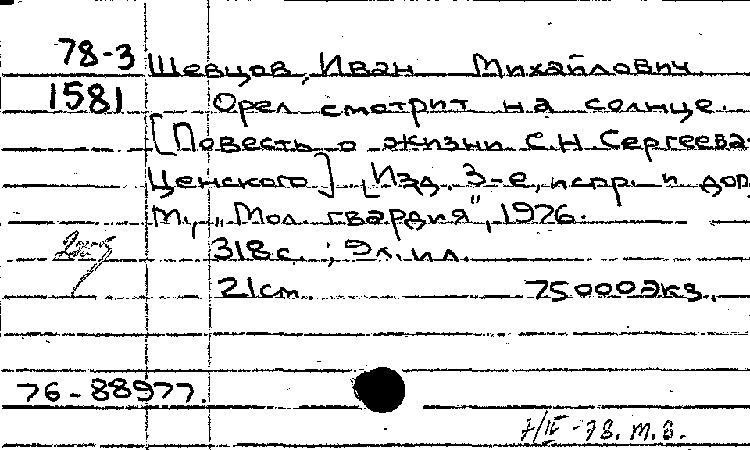 78-3 Шевцов, Иван Михайлович.
1581 Орел смотрит на солнце.
[Повесть о жизни С.Н Сергеева-
Ценского] [Изд. 3-е, испр. и доп.
М., „Мол. гвардия", 1976.
318с. ; 9л.ил.
21см. 75000экз.
76-88977.
7/IV-78. м.в.